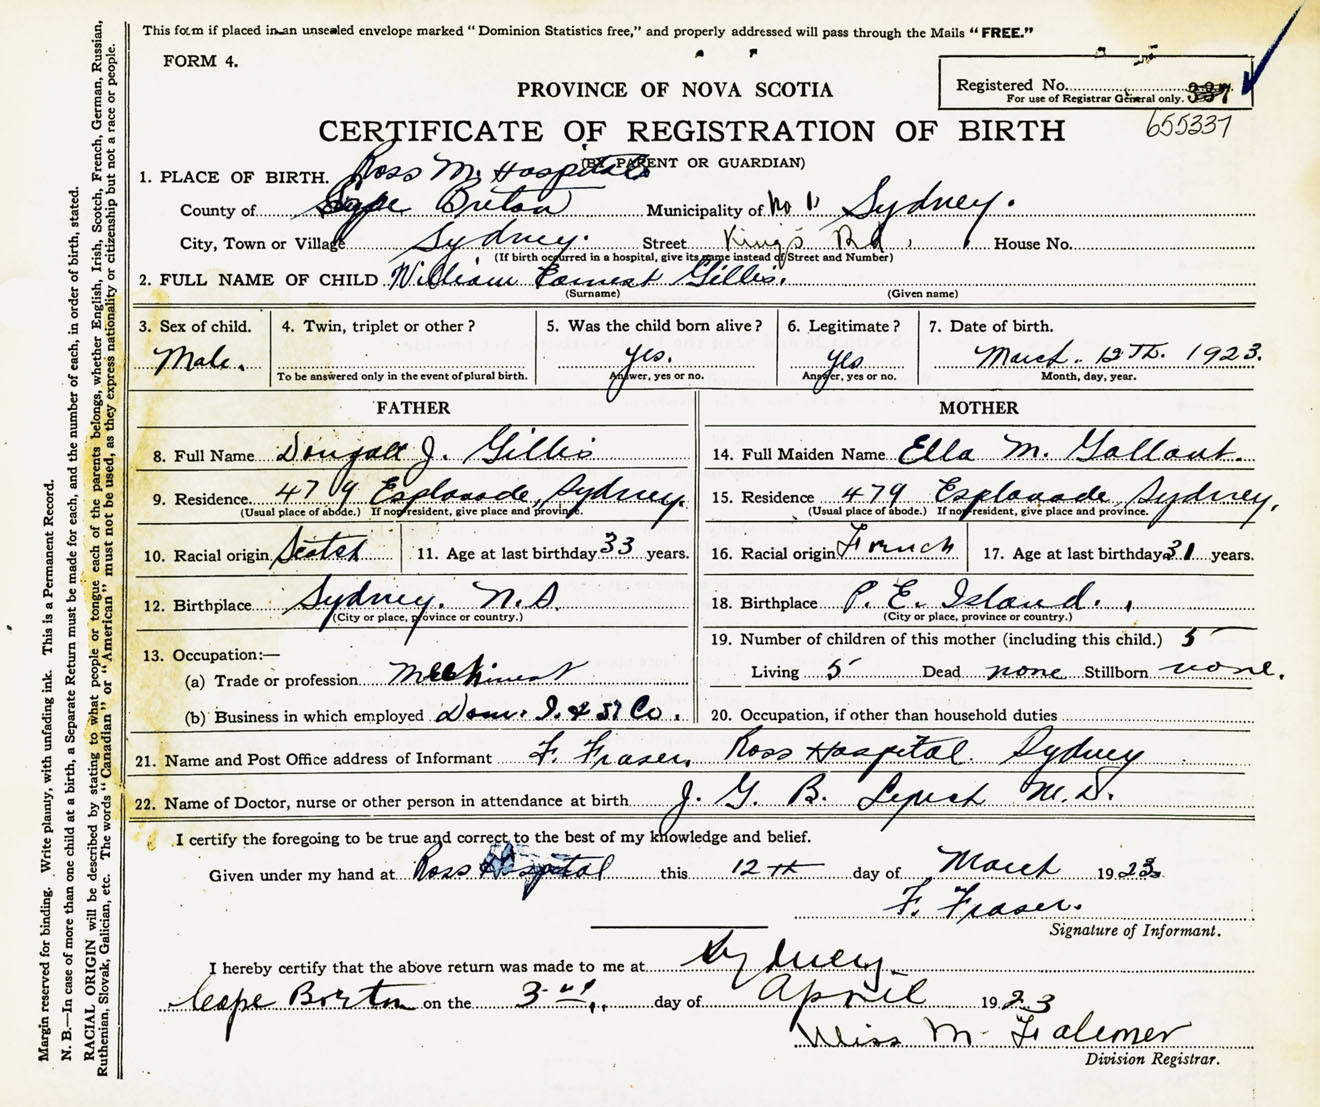 This form if placed in an unsealed envelope marked "Dominion Statistics free," and properly addressed will pass through the Mails "FREE."
FORM 4.
PROVINCE OF NOVA SCOTIA
Registered No. 337
For use of Registrar General only.
655337
CERTIFICATE OF REGISTRATION OF BIRTH
(BY PARENT OR GUARDIAN)
1. PLACE OF BIRTH. Ross M. Hospital
County of Cape Breton Municipality of No 1 Sydney.
City, Town or Village Sydney. Street King's Rd, House No.
(If birth occurred in a hospital, give its name instead of Street and Number)
2. FULL NAME OF CHILD William Earnest Gillis.
(Surname) (Given name)
3. Sex of child. 4. Twin, triplet or other? 5. Was the child born alive? 6. Legitimate? 7. Date of birth.
Male. yes. yes March 12TH. 1923.
To be answered only in the event of plural birth. Answer, yes or no. Answer, yes or no. Month, day, year.
FATHER
8. Full Name Dougall J. Gillis
9. Residence 479 Esplanade, Sydney.
(Usual place of abode.) If non-resident, give place and province.
10. Racial origin Scotch 11. Age at last birthday 33 years.
12. Birthplace Sydney. N.S.
(City or place, province or country.)
13. Occupation:—
(a) Trade or profession Machinest
(b) Business in which employed Dom. I. & St Co.
MOTHER
14. Full Maiden Name Ella M. Gallant.
15. Residence 479 Esplanade Sydney,
(Usual place of abode.) If non-resident, give place and province.
16. Racial origin French 17. Age at last birthday 31 years.
18. Birthplace P. E. Island.
(City or place, province or country.)
19. Number of children of this mother (including this child.) 5
Living 5 Dead none Stillborn none.
20. Occupation, if other than household duties
21. Name and Post Office address of Informant F. Fraser, Ross Hospital. Sydney
22. Name of Doctor, nurse or other person in attendance at birth J. G. B. M.D.
I certify the foregoing to be true and correct to the best of my knowledge and belief.
Given under my hand at Ross Hospital this 12TH day of March 1923
F. Fraser.
Signature of Informant.
I hereby certify that the above return was made to me at Sydney
Cape Breton on the 3rd day of April 1923
Miss M
Division Registrar.
Margin reserved for binding. Write plainly, with unfading ink. This is a Permanent Record.
N. B.—In case of more than one child at a birth, a Separate Return must be made for each, and the number of each, in order of birth, stated.
RACIAL ORIGIN will be described by stating to what people or tongue each of the parents belongs, whether English, Irish, Scotch, French, German, Russian,
Ruthenian, Slovak, Galician, etc. The words "Canadian" or "American" must not be used, as they express nationality or citizenship but not a race or people.